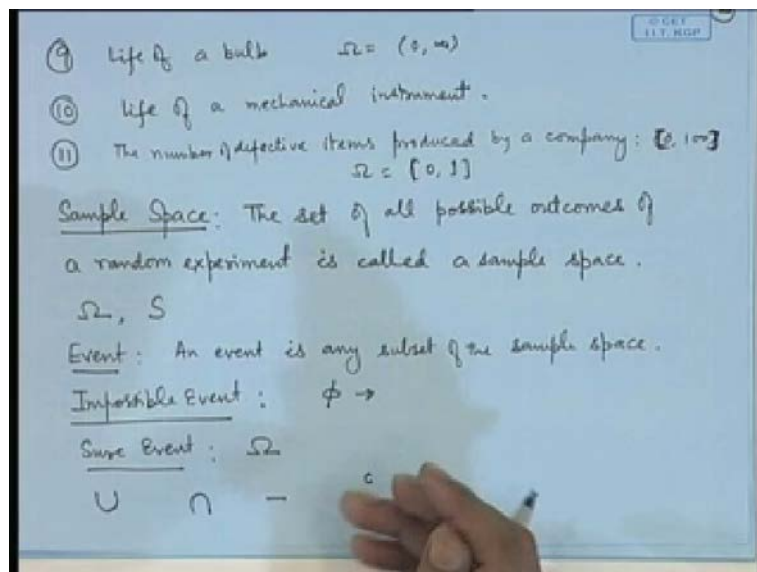 © CET
I.I.T. KGP
⑨ Life of a bulb Ω = (0, ∞)
⑩ Life of a mechanical instrument.
⑪ The number of defective items produced by a company: [0, 100]
Ω = [0, 1]
Sample Space: The set of all possible outcomes of
a random experiment is called a sample space.
Ω, S
Event: An event is any subset of the sample space.
Impossible Event: ϕ →
Sure Event: Ω
∪ ∩ − c